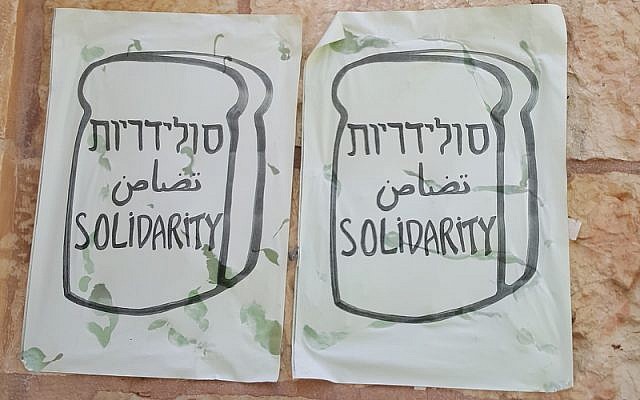 סולידריות
تضامن
SOLiDARiTY
סולידריות
تضامن
SOLiDARiTY